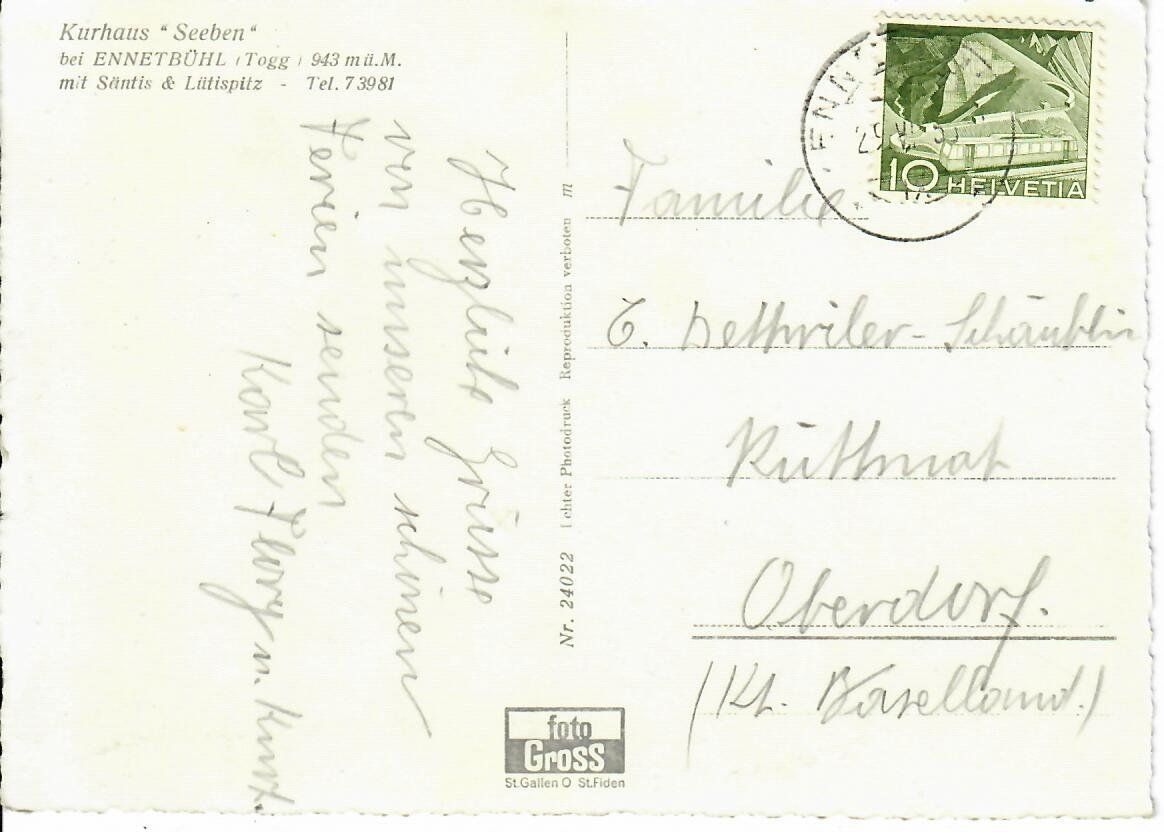 Kurhaus "Seeben"
bei ENNETBÜHL (Togg) 943 m ü.M.
mit Säntis & Lütispitz - Tel. 73981
Herzliche Grüsse
von unseren schönen
Ferien senden
Karl, u. Kurt.
Nr. 24022 Echter Photodruck Reproduktion verboten m
foto
Gross
St.Gallen O St.Fiden
10 HELVETIA
Familie
Dettwiler-Schäublin
Rüttmat
Oberdorf.
(Kt. Baselland.)